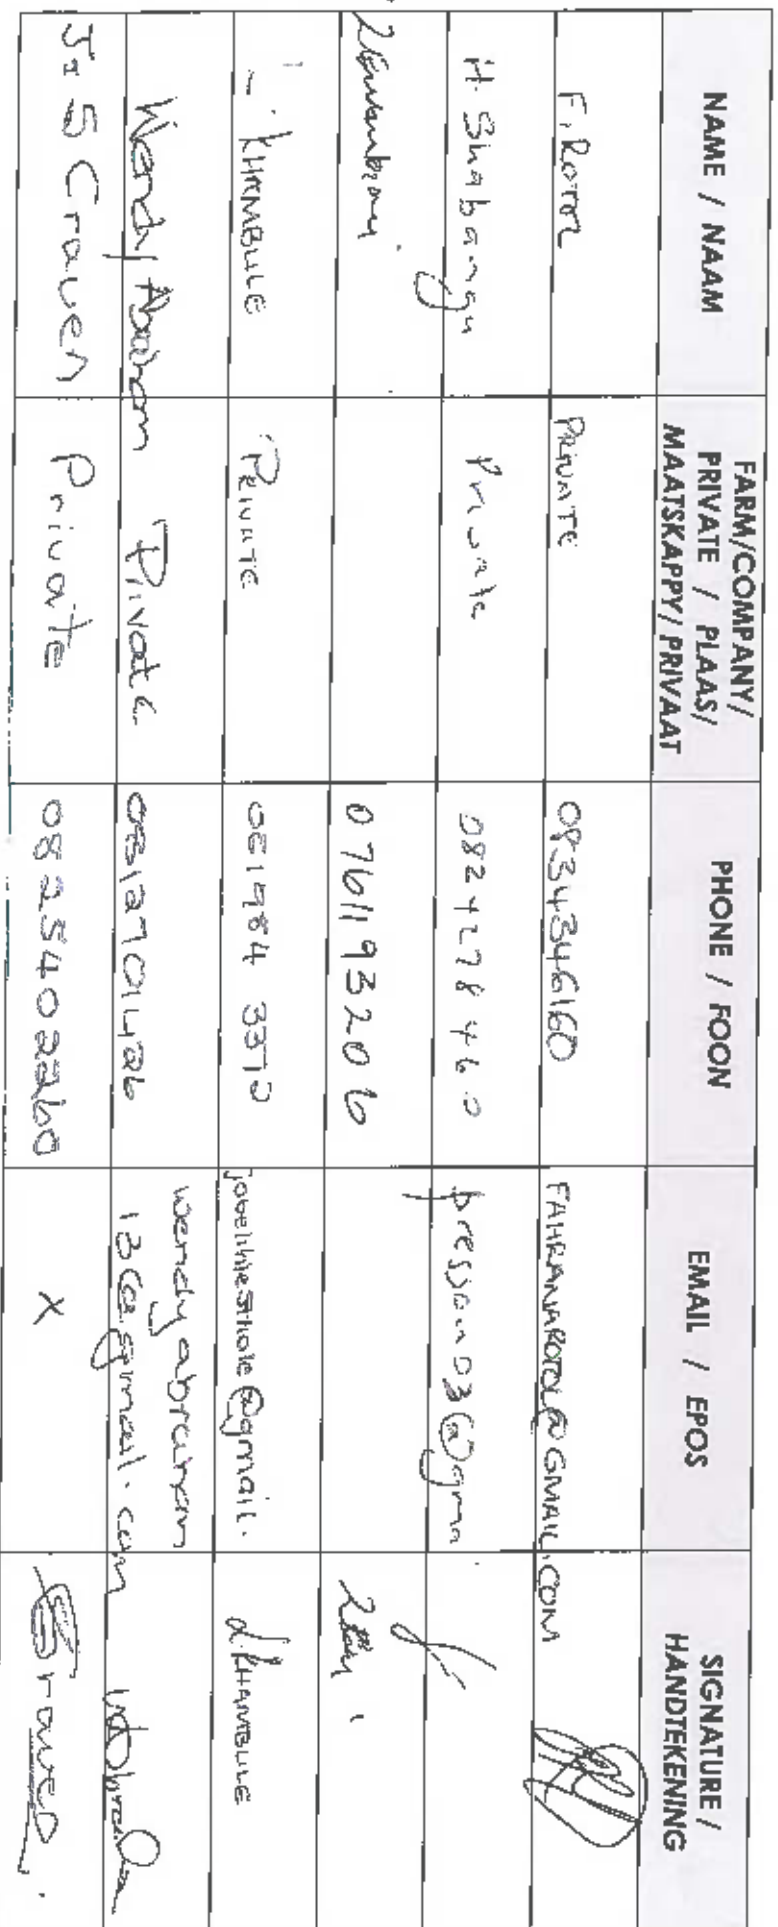 NAME / NAAM
FARM/COMPANY/
PRIVATE / PLAAS/
MAATSKAPPY/ PRIVAAT
PHONE / FOON
EMAIL / EPOS
SIGNATURE /
HANDTEKENING
F. Rotol PRIVATE 0834346160 FAHRANAROTOL@GMAIL.COM
H. Shabangu Private 0824278460 pression03@gma
0761193206
KHAMBULE PRIVATE 061984 3370 @gmail. L. KHAMBULE
Wendy Abraham Private 0812701426 wendyabraham
13@gmail.com
J. S Craven Private 0825402260 X